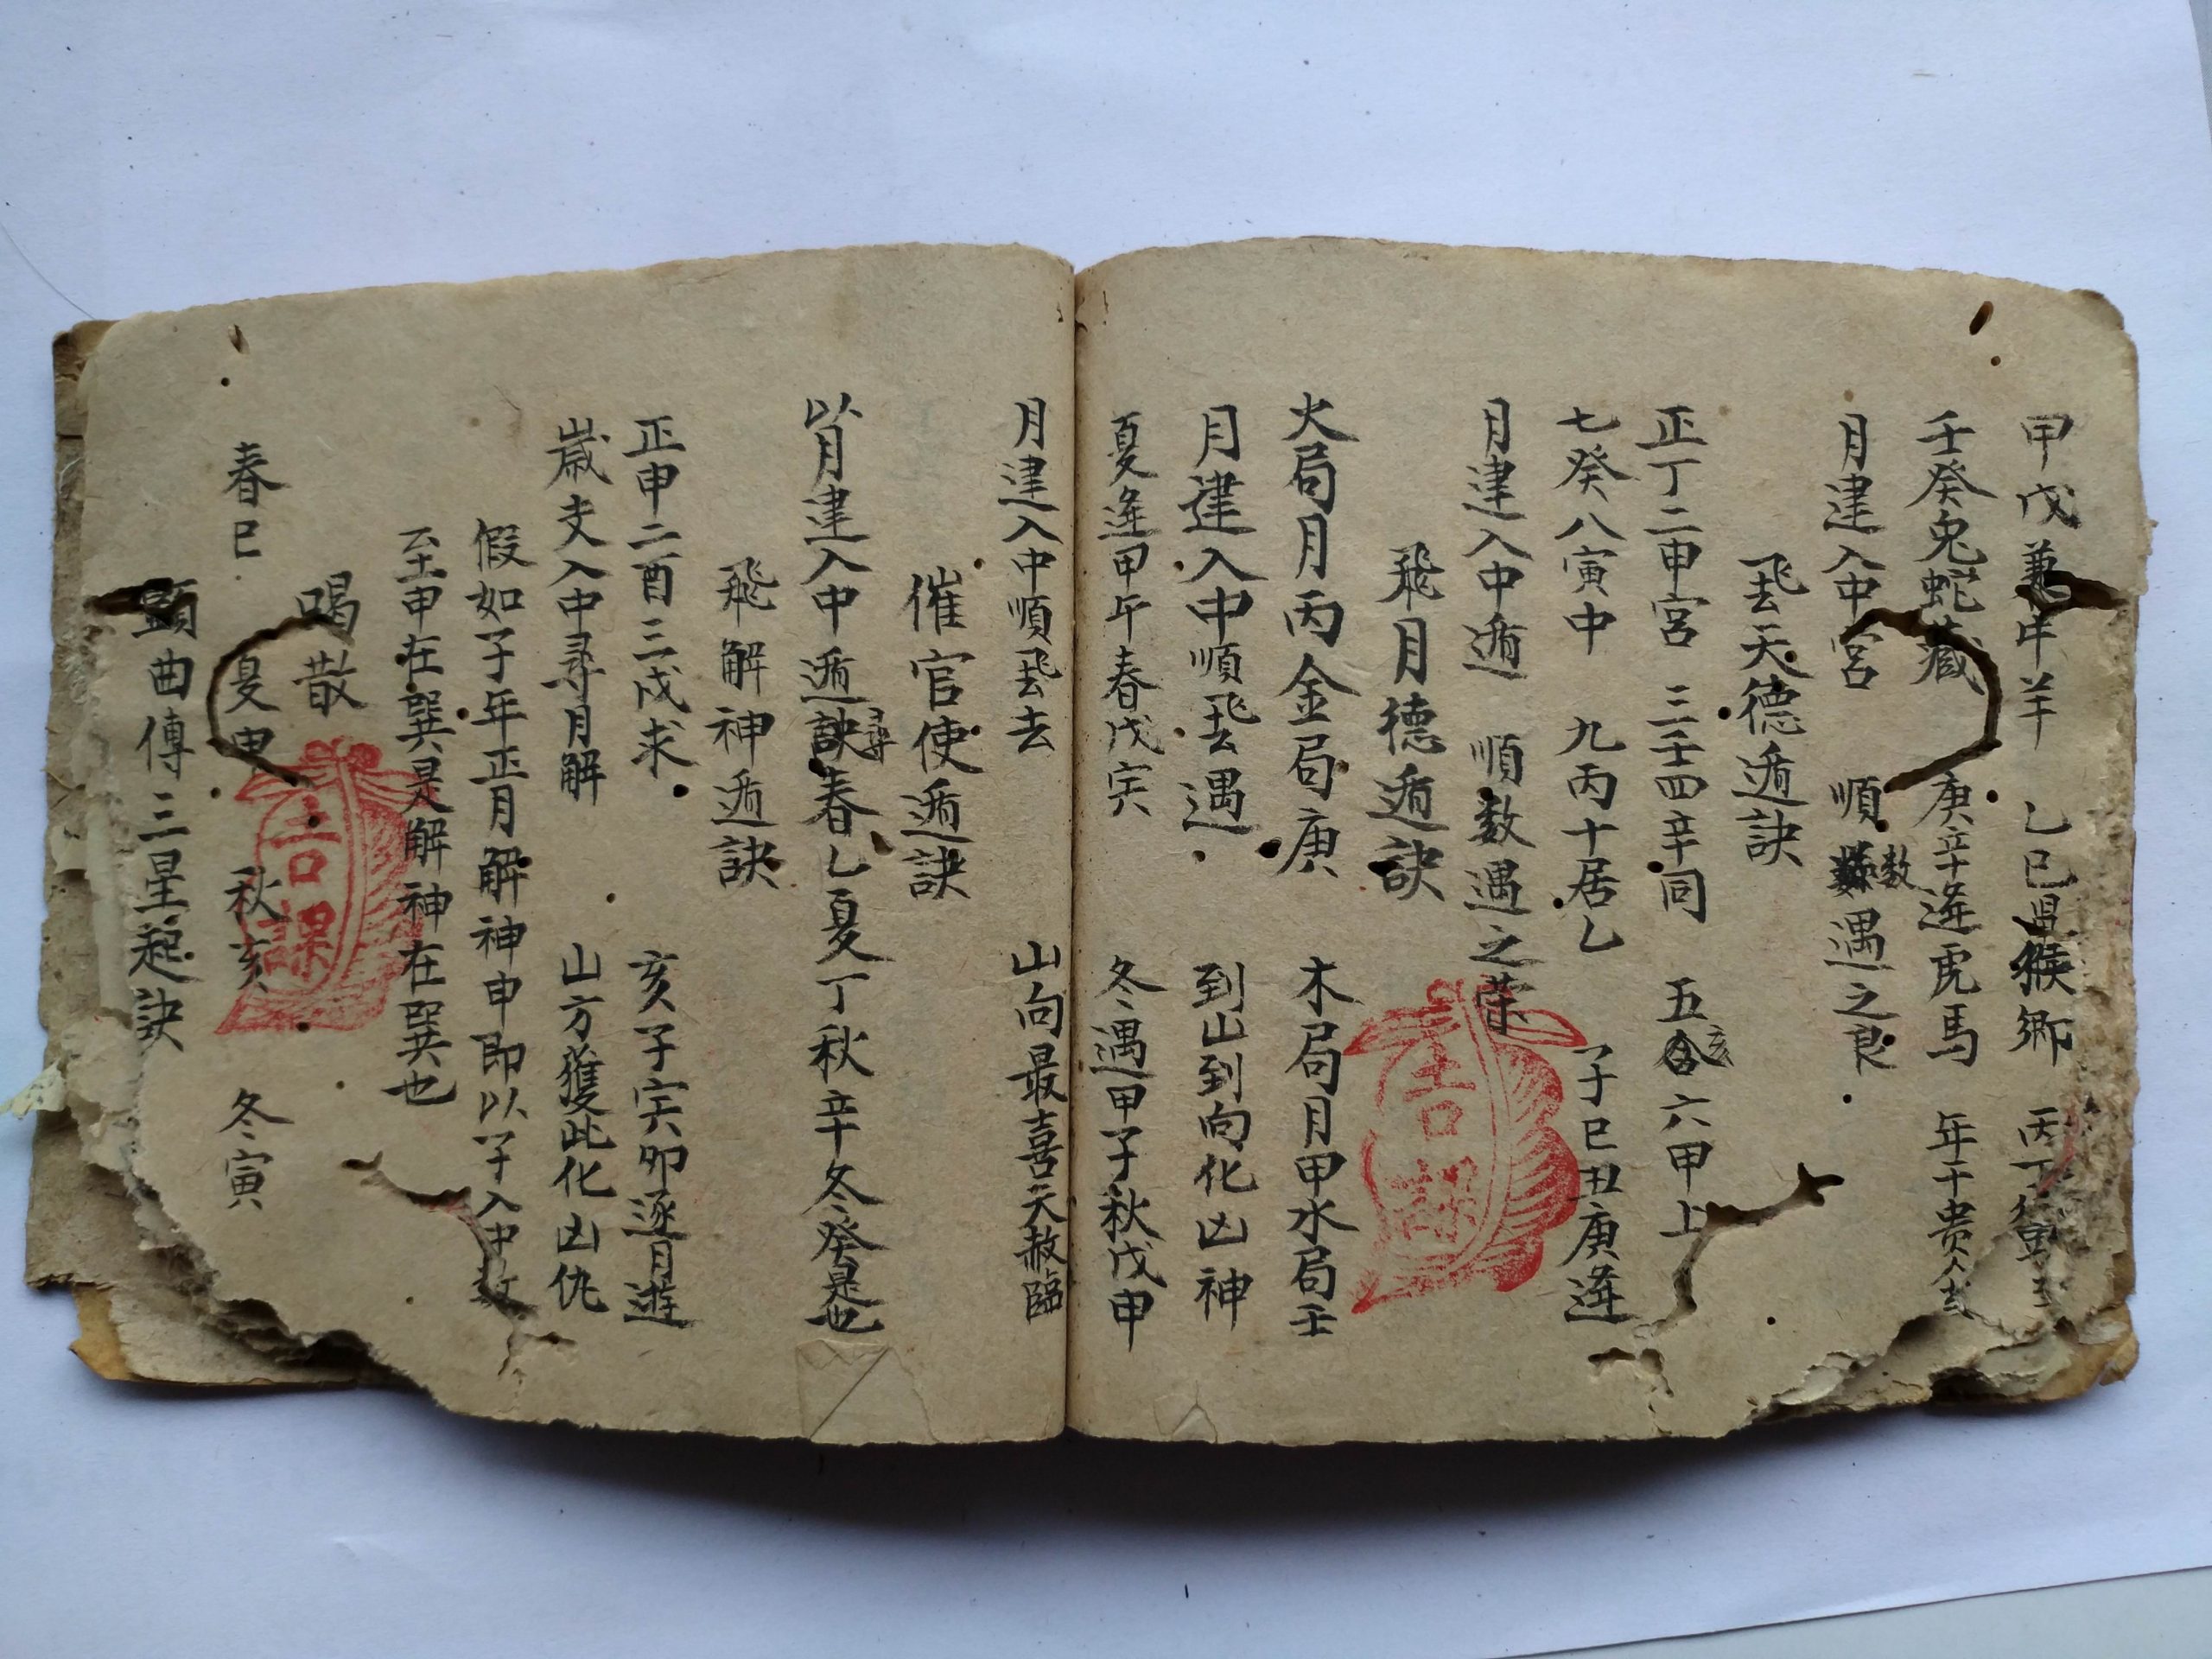 甲戊兼牛羊 乙己鼠猴鄉 丙丁
壬癸兔蛇藏 庚辛逢虎馬 年干贵人
月建入中宮 順数遇之良
飛天德遁訣
正丁二申宮 三壬四辛同 五亥六甲上
七癸八寅中 九丙十居乙 子巳丑庚逢
月建入中遁 順数遇之荣
飛月德遁訣
火局月丙金局庚 木局月甲水局壬
月建入中順飛去遇 到山到向化凶神
夏逢甲午春戊寅 冬遇甲子秋戊申
月建入中順飛去 山向最喜天赦臨
催官使遁訣
以月建入中遁尋春乙夏丁秋辛冬癸是也
飛解神遁訣
正申二酉三戌求 亥子寅卯逐月遊
歲支入中尋月解 山方獲此化凶仇
假如子年正月解神申即以子入中数
至申在巽是解神在巽也
喝散
春巳 夏申 秋亥 冬寅
顯曲傅三星起訣
吉課
吉課